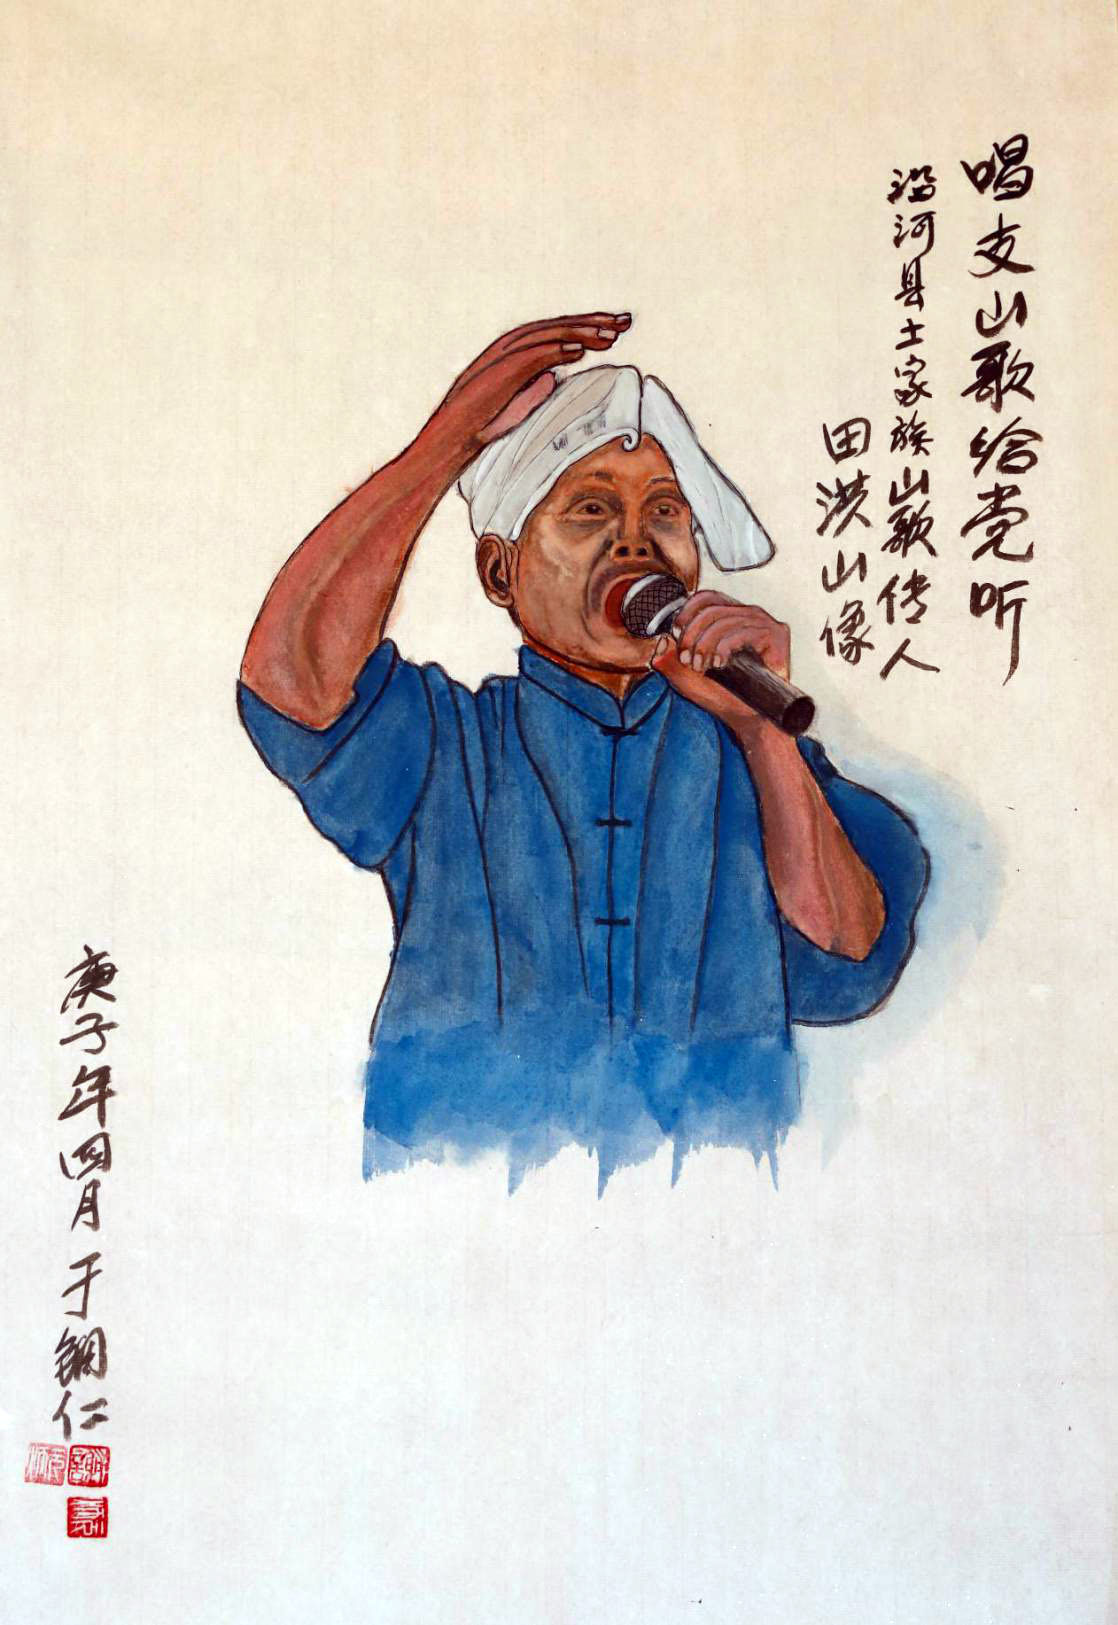 唱支山歌给党听
沿河县土家族山歌传人
田洪山像
庚子年四月于铜仁